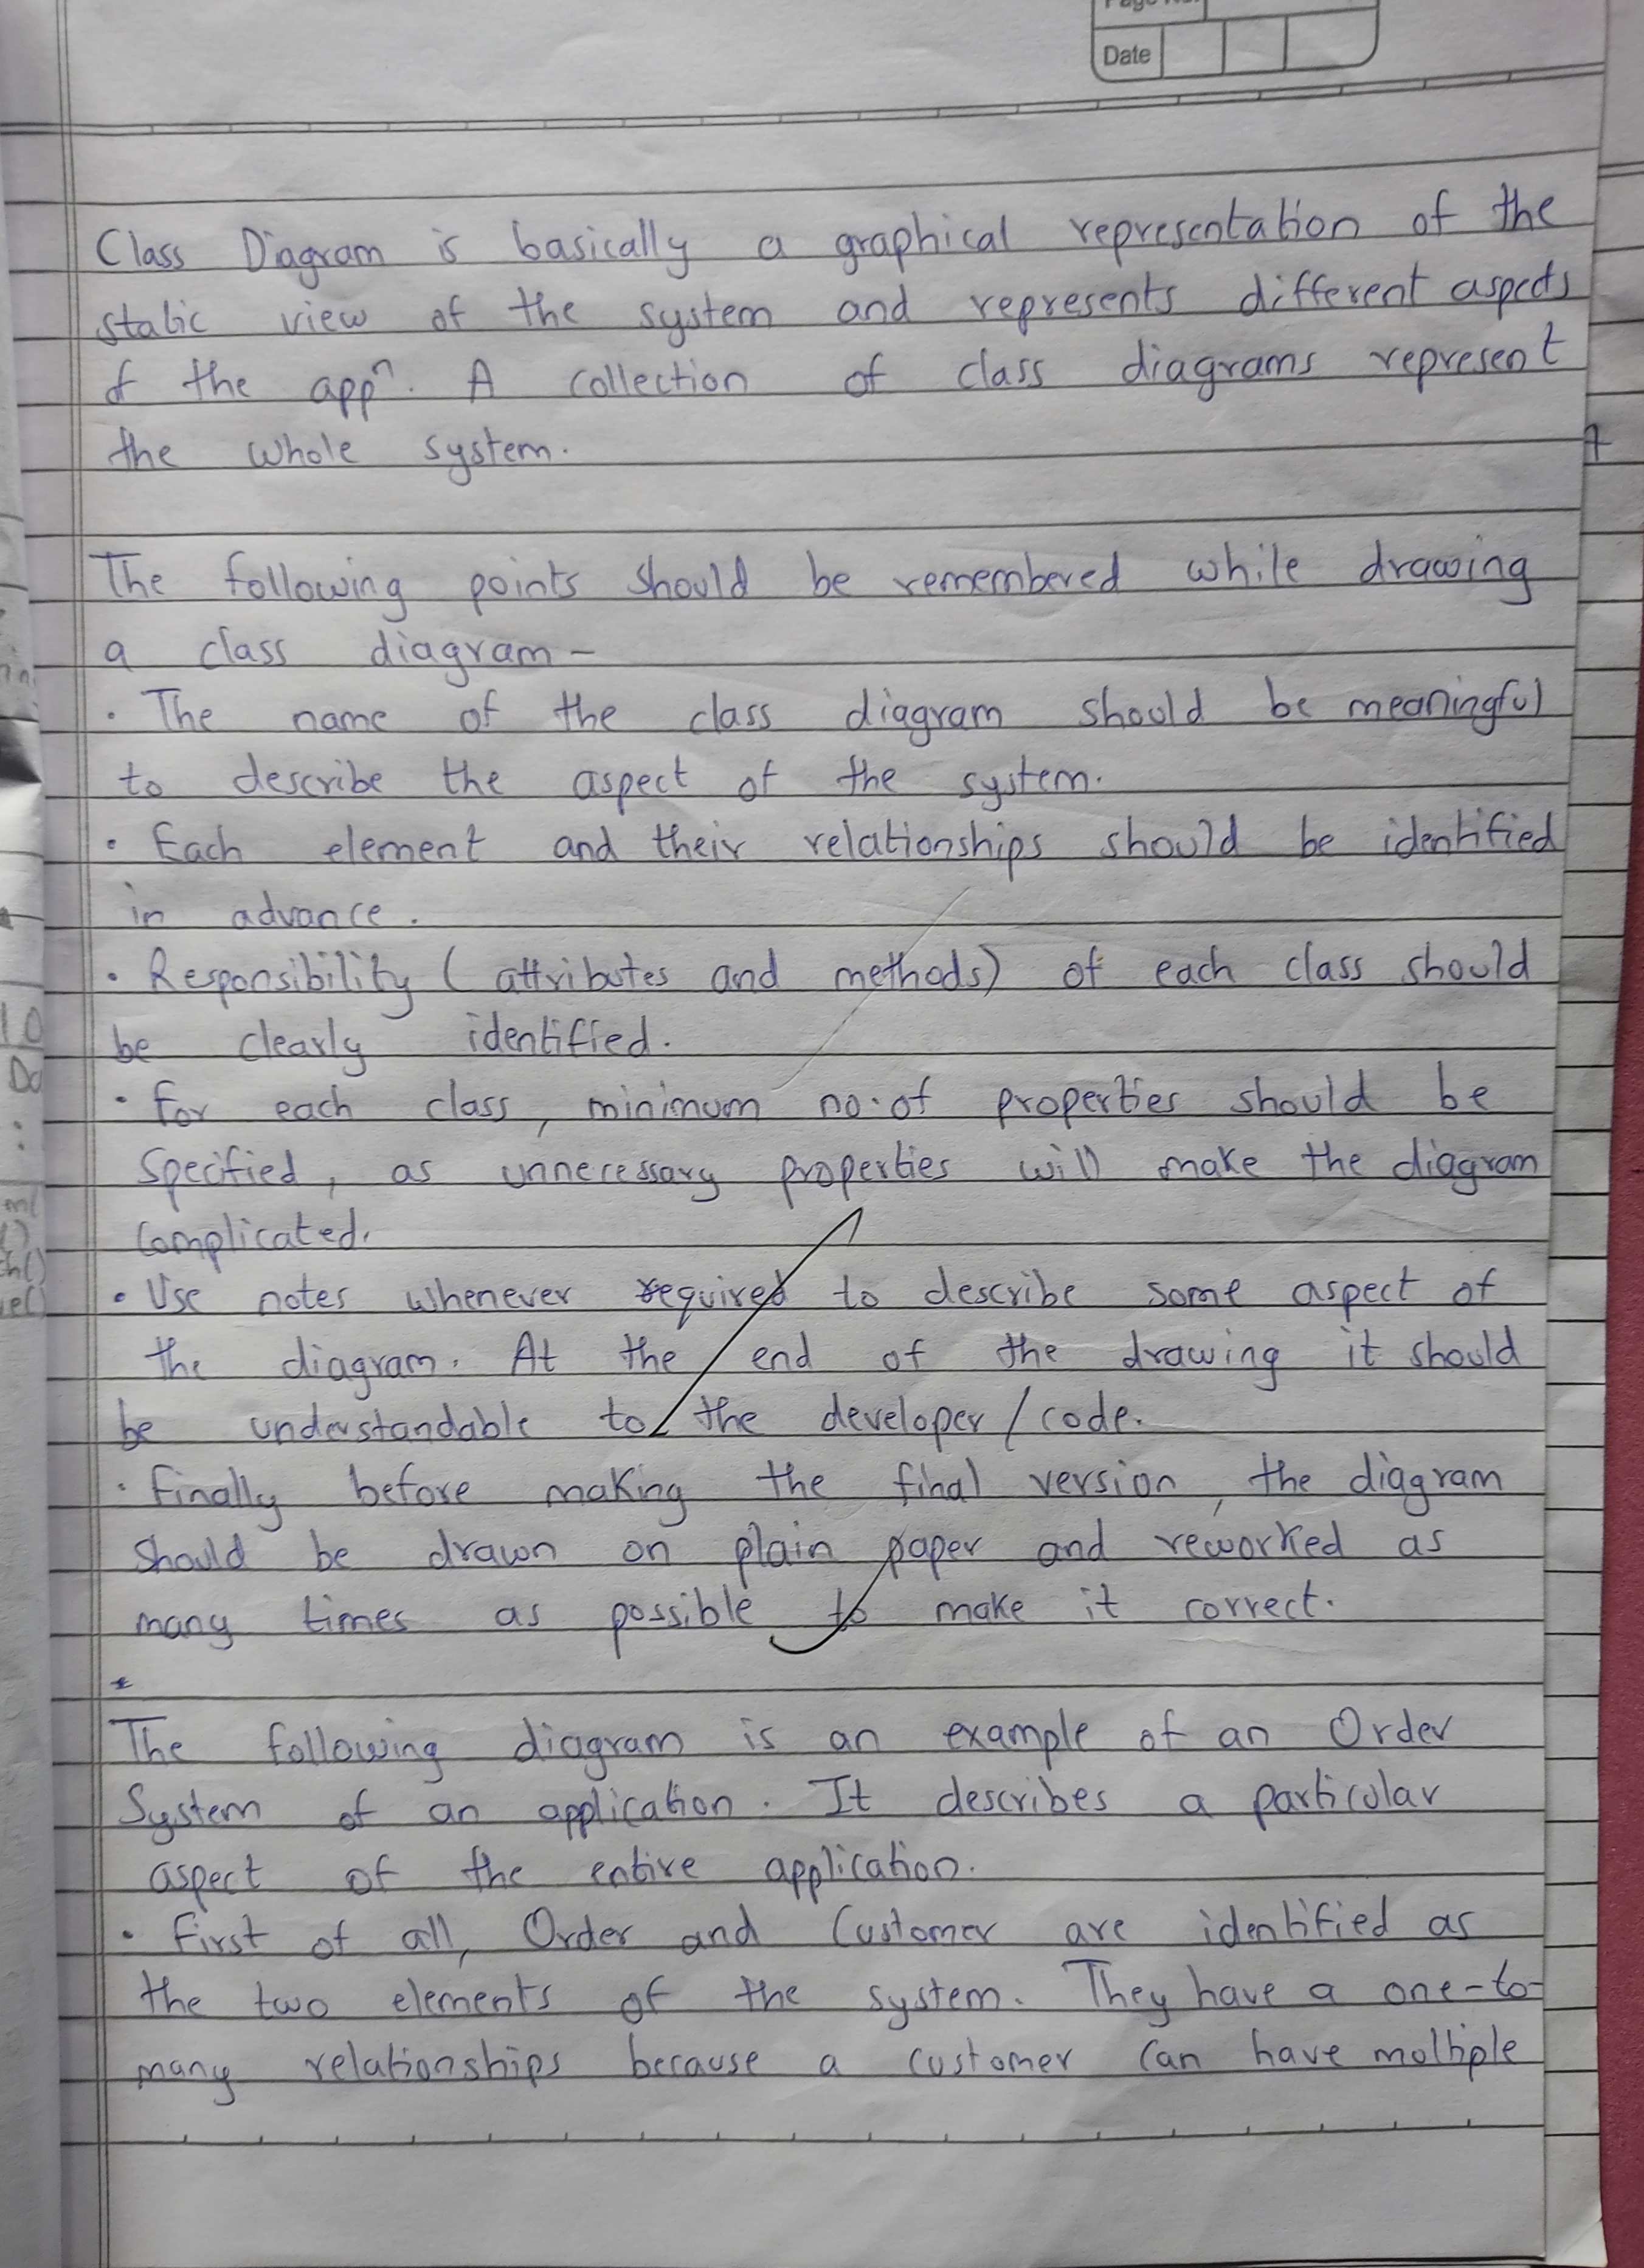 Page No.
Date
Class Diagram is basically a graphical representation of the
static view of the system and represents different aspects
of the appⁿ. A collection of class diagrams represent
the whole system.
The following points should be remembered while drawing
a class diagram -
· The name of the class diagram should be meaningful
to describe the aspect of the system.
· Each element and their relationships should be identified
in advance.
· Responsibility (attributes and methods) of each class should
be clearly identified.
· For each class, minimum no. of properties should be
specified, as unnecessary properties will make the diagram
complicated.
· Use notes whenever required to describe some aspect of
the diagram. At the end of the drawing it should
be understandable to the developer / code.
· Finally before making the final version, the diagram
should be drawn on plain paper and reworked as
many times as possible to make it correct.
The following diagram is an example of an Order
System of an application. It describes a particular
aspect of the entire application.
· First of all, Order and Customer are identified as
the two elements of the system. They have a one-to-
many relationships because a customer can have multiple